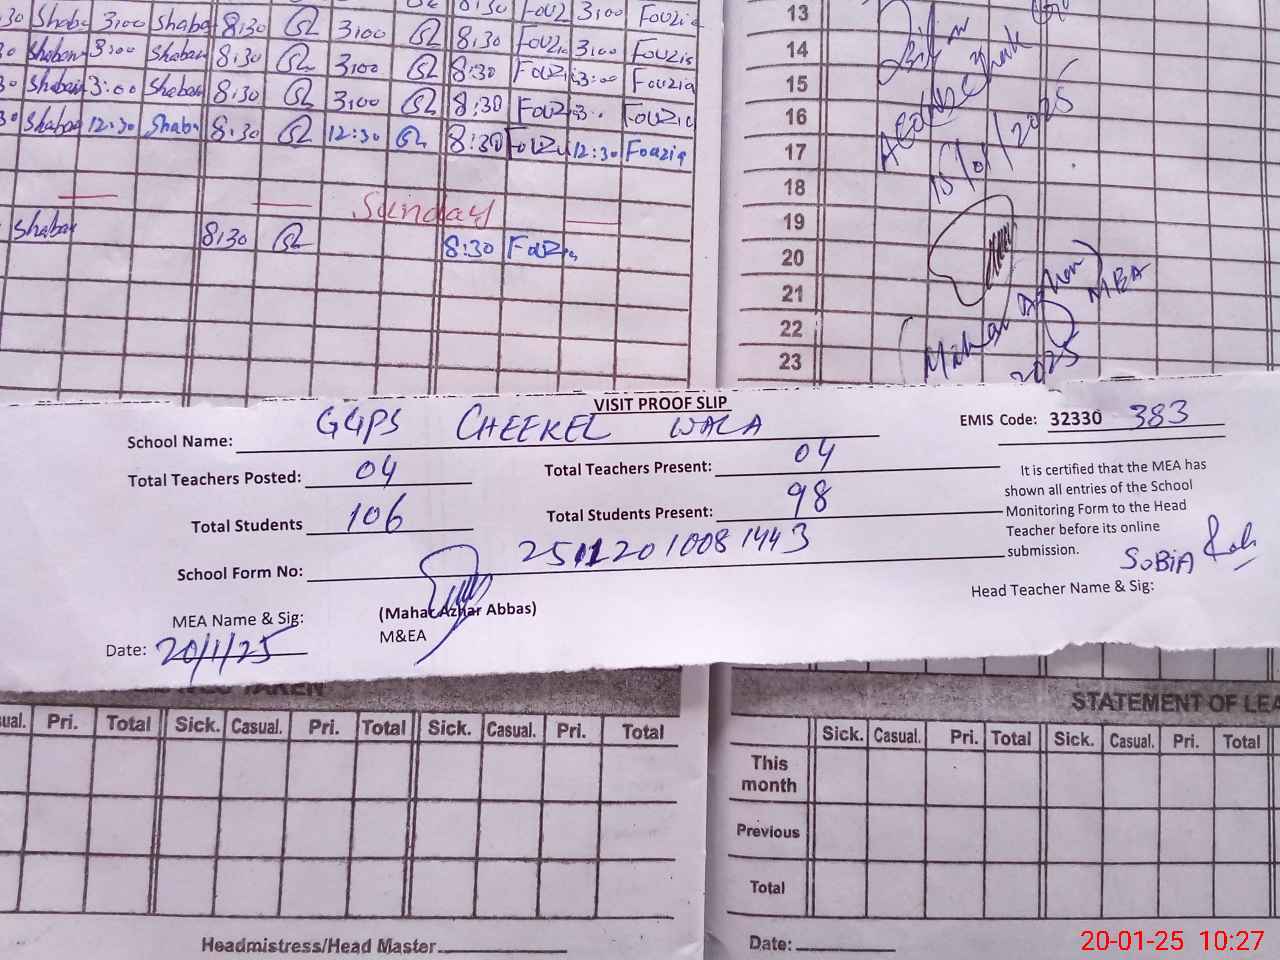 30 Shaba 3;00 Shaba 8;30 3;00 8;30 Fouz 3;00 Fouzia
30 Shaban 3:00 Shaban 8;30 3;00 8;30 Fouzia 3:00 Fouzia
30 Shaban 3:00 Shaban 8;30 3;00 8;30 Fouzi 3: Fouzia
30 Shaban 12:30 Shaba 8;30 12:30 8;30 Fouzia 12:30 Fouzia
Sunday
Shaban 8;30 8:30 Fouzia
13
14
15
16
17
18
19
20
21
22
23
15/01/2025
Mahar Azhar
MEA
2025
VISIT PROOF SLIP
School Name: GGPS CHEEKEL WALA EMIS Code: 32330 383
Total Teachers Posted: 04 Total Teachers Present: 04
Total Students 106 Total Students Present: 98
It is certified that the MEA has
shown all entries of the School
Monitoring Form to the Head
Teacher before its online
submission.
School Form No:
SOBIA
MEA Name & Sig: (Mahar Azhar Abbas)
M&EA
Head Teacher Name & Sig:
Date: 20/1/25
TAKEN
STATEMENT OF LEA
ual. Pri. Total Sick. Casual. Pri. Total Sick. Casual. Pri. Total
Sick. Casual. Pri. Total Sick. Casual. Pri. Total
This
month
Previous
Total
Headmistress/Head Master
Date:
20-01-25 10:27